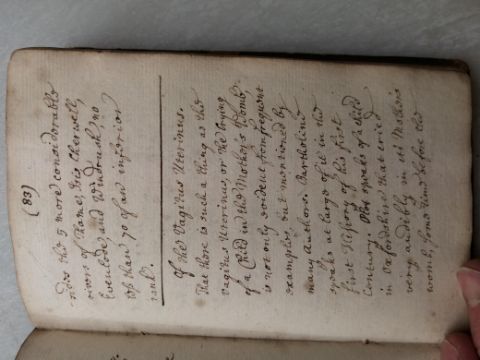 (83)
nder the 5 more considerable
rivers of Tame, Isis, Cherwell,
Evenlode, and Windrush, no
less than 70 of an inferior
rank.
Of the Vagitus Uterinus.
That there is such a thing as the
Vagitus Uterinus, or the Crying
of a Child in the Mother's Womb,
is not only evident from frequent
examples, but mentioned by
many Authors. Bartholine
speaks at large of it in the
first History of his first
Century. Plot speaks of a child
in Oxfordshire that cried
very audibly in its Mothers
womb, some time before the